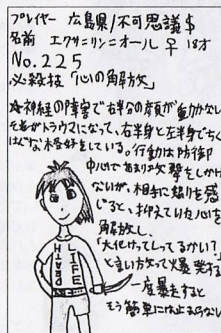 プレイヤー 広島県/不可思議$
名前 エクサニリンニオール ♀ 18才
No.225
必殺技「心の解放」
☆神経の障害で右半分の顔が動かない
それがトラウマになって、右半身と左半身でちぐ
はぐな格好をしている。行動は防御
中心であまり攻撃をしかけ
ないが、相手に怒りを感
じると、抑えていた心を
解放し、
「大化けってしってるかい?」
と言い放って爆発する
一度暴走すると
もう簡単には止まらない
DEATH
LIFE